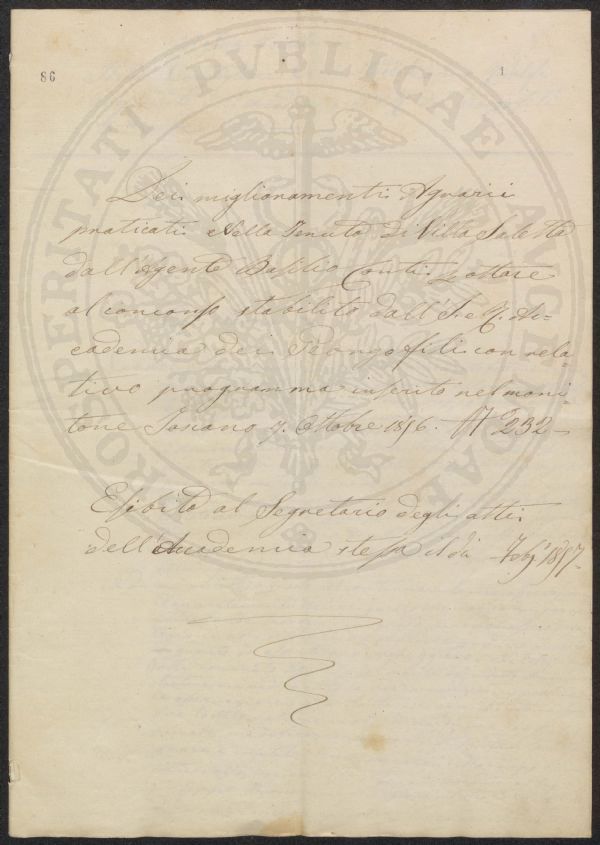 86
1
PROSPERITATI PVBLICAE AVGENDAE
Dei miglioramenti Agrarii
praticati Nella Tenuta Di Villa Saletta
dall'Agente Basilio Conti
al concorso stabilito dall'I. e R. Ac=
cademia dei Georgofili con rela-
tivo programma inserito nel moni-
tore Toscano 7. Ottobre 1856. N° 232-
Esibito al Segretario degli atti
dell'Accademia stessa il dì 1857.